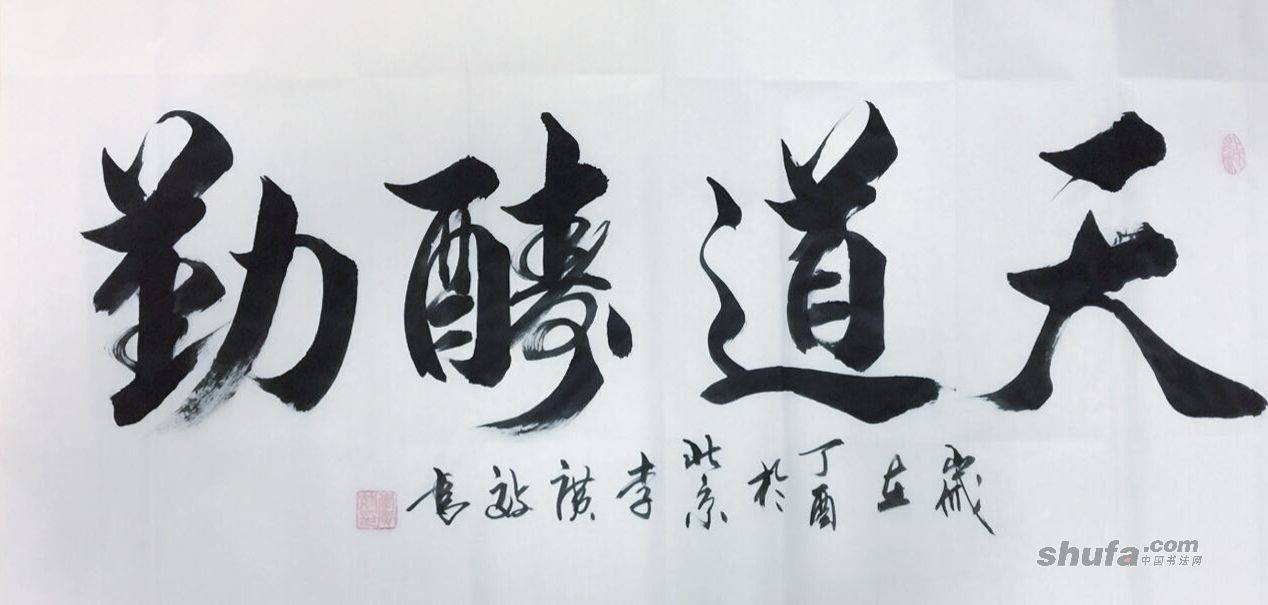 天道酬勤
歲在丁酉於北京李
書
shufa.com
中国书法网